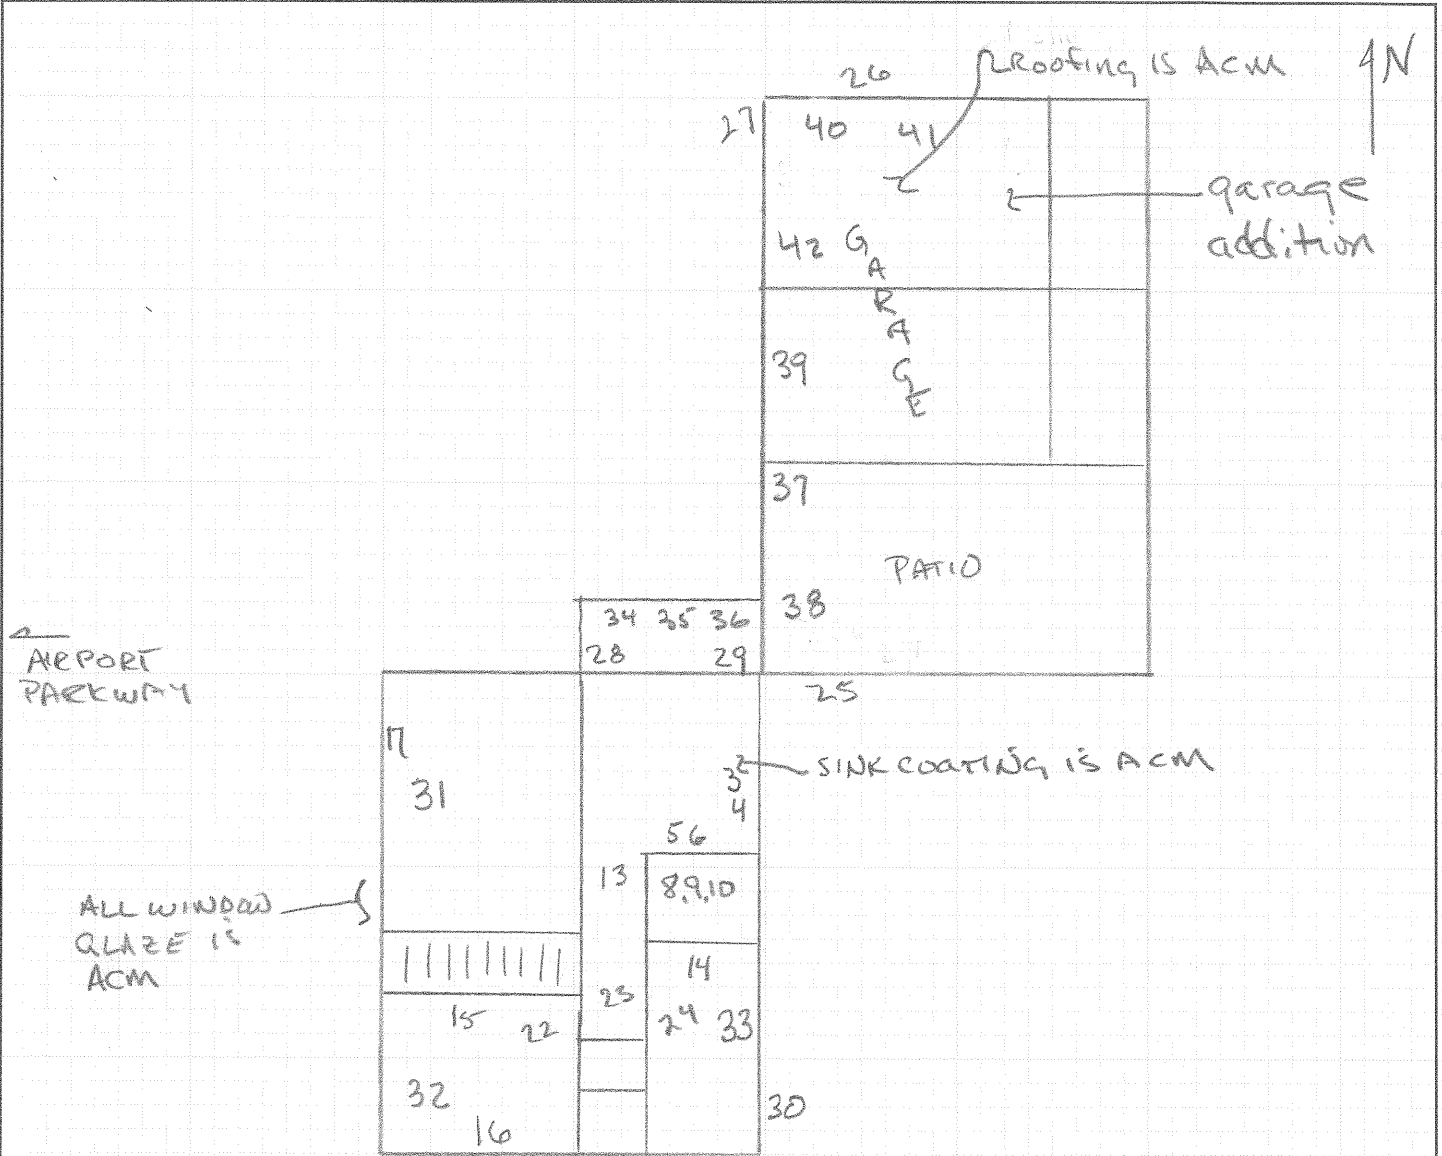 Roofing is ACM
N
26
27
40 41
garage
addition
42
GARAGE
39
37
PATIO
38
34 35 36
28 29
AIRPORT
PARKWAY
25
17
31
2
SINK COATING is ACM
3
4
5 6
13
8,9,10
ALL WINDOW
GLAZE is
ACM
14
23
15 22
24 33
32
30
16